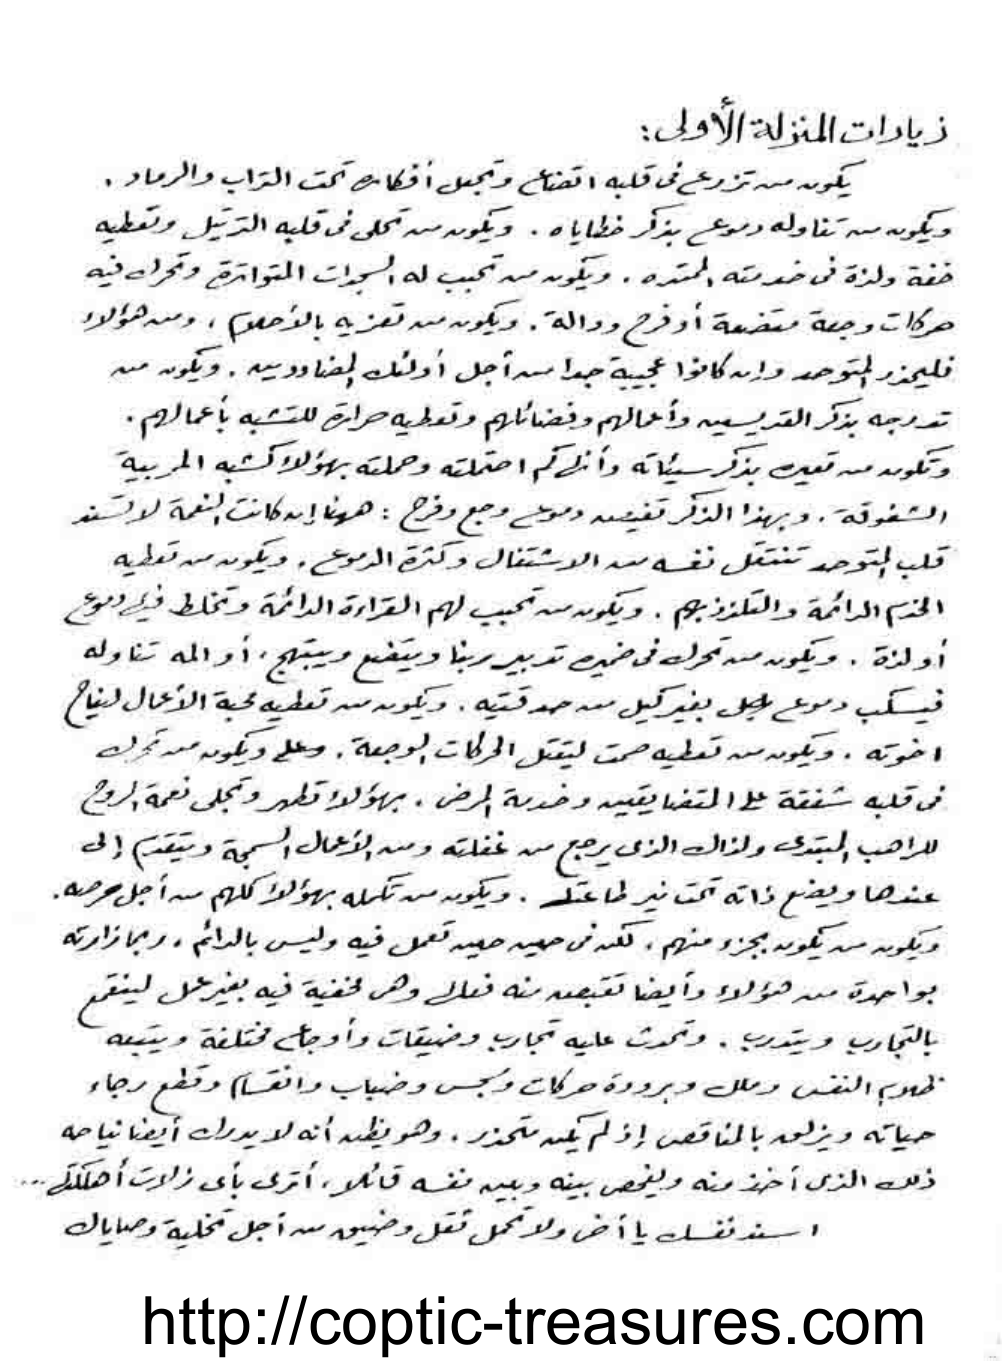 زيارات المنزلة الأولى:
يكون من تزرع فى قلبه اتضاع وتجعل أفكاره تحت التراب والرماد.
ويكون من تفاوله دموع بذكر خطاياه. ويكون من تحلى فى قلبه الترتيل وتعطيه
خفة ولذة فى خدمته الممتده. ويكون من تحبب له السجدات المتواترة وتحرك فيه
حركات وجعة متضعة أو فرح ودالة. ويكون من تعزيه بالأحلام، ومن هؤلاء
فليحذر المتوحد وإن كانوا عجيبة جدا من أجل أولئك المضاددين. ويكون من
تدرجه بذكر القديسين وأعمالهم وفضائلهم وتعطيه حرارة للتشبه بأعمالهم.
وتكون من تعيره بذكر سيئاته وأنها كم احتملته وحملته بهؤلاء كشبه المربية
الشفوقة. وبهذا الذكر تفيض دموع وجع وفرح: ههنا إن كانت النعمة لا تسند
قلب المتوحد تنتقل نفسه من الاشتغال وكثرة الدموع. ويكون من تعطيه
الخدم الدائمة والتلذذ بهم. ويكون من تحبب لهم القراءة الدائمة وتخلط فيها دموع
أو لذة. ويكون من تحرك فى ضميره تدبير ربنا ويتضع ويبتهج، أو المه تناوله
فيسكب دموع بغير كيل من حدقتيه. ويكون من تعطيه محبة الأعمال لنياح
اخوته. ويكون من تعطيه صمت ليقتل الحركات الوجعة. ويكون من تحرك
فى قلبه شفقة على المتضايقين وخدمة المرض. بهؤلاء تطهر وتجلى نعمة الروح
للراهب المبتدى ولذاك الذى يرجع من غفلته ومن الأعمال السمجة ويتقدم إلى
عندها ويضع ذاته تحت نير طاعتها. ويكون من تكمله بهؤلاء كلهم من أجل حرصه.
ويكون من يكون بجزء منهم، لكن فى حين حين تعمل فيه وليس بالدائم، ربما زارته
بواحدة من هؤلاء وأيضا تقبض منه فعالها وهى مخفية فيه بغير عمل لينقمع
بالتجارب ويتدرب. وتحدث عليه تجارب وضيقات وأوجاع مختلفة ويتبعه
ظلام النفس وملل وبرودة حركات وسجس وضباب وانقسام وقطع رجاء
حياته ويزلق بالمناقص إذ لم يكن متحذر. وهو يظن أنه لا يدرك أيضا نياحه
ذلك الذى أخذ منه ويفحص بينه وبين نفسه قائلا، أترى بأى زلات أهلكتها ...
اسند نفسك يا أخى ولا تحمل ثقل وضيق من أجل تخلية وصاياك
http://coptic-treasures.com